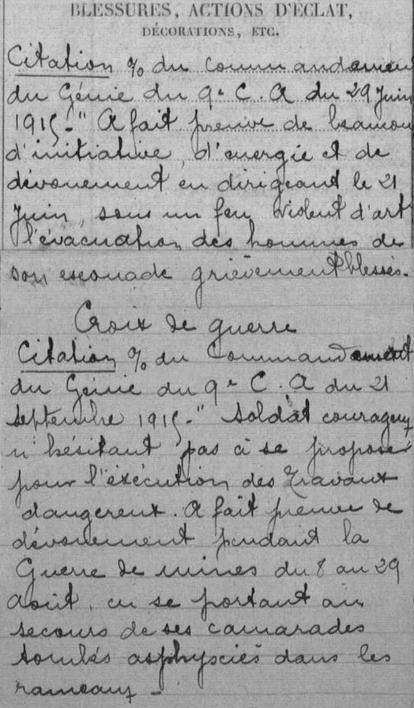 BLESSURES, ACTIONS D'ÉCLAT,
DÉCORATIONS, ETC.
Citation % du commandement
du Génie du 9e C.A du 29 Juin
1915 - " A fait preuve de beaucou
d'initiative, d'énergie et de
dévouement en dirigeant le 21
Juin, sous un feu violent d'art
l'évacuation des hommes de
son escouade grièvement blessés.
Croix de guerre
Citation % du Commandement
du Génie du 9e C.A du 21
septembre 1915 - " Soldat courageux
n'hésitant pas à se proposer
pour l'éxécution des travaux
dangereux. A fait preuve de
dévouement pendant la
Guerre de mines du 8 au 29
Août, en se portant au
secours de ses camarades
tombés asphyxiés dans les
rameaux -